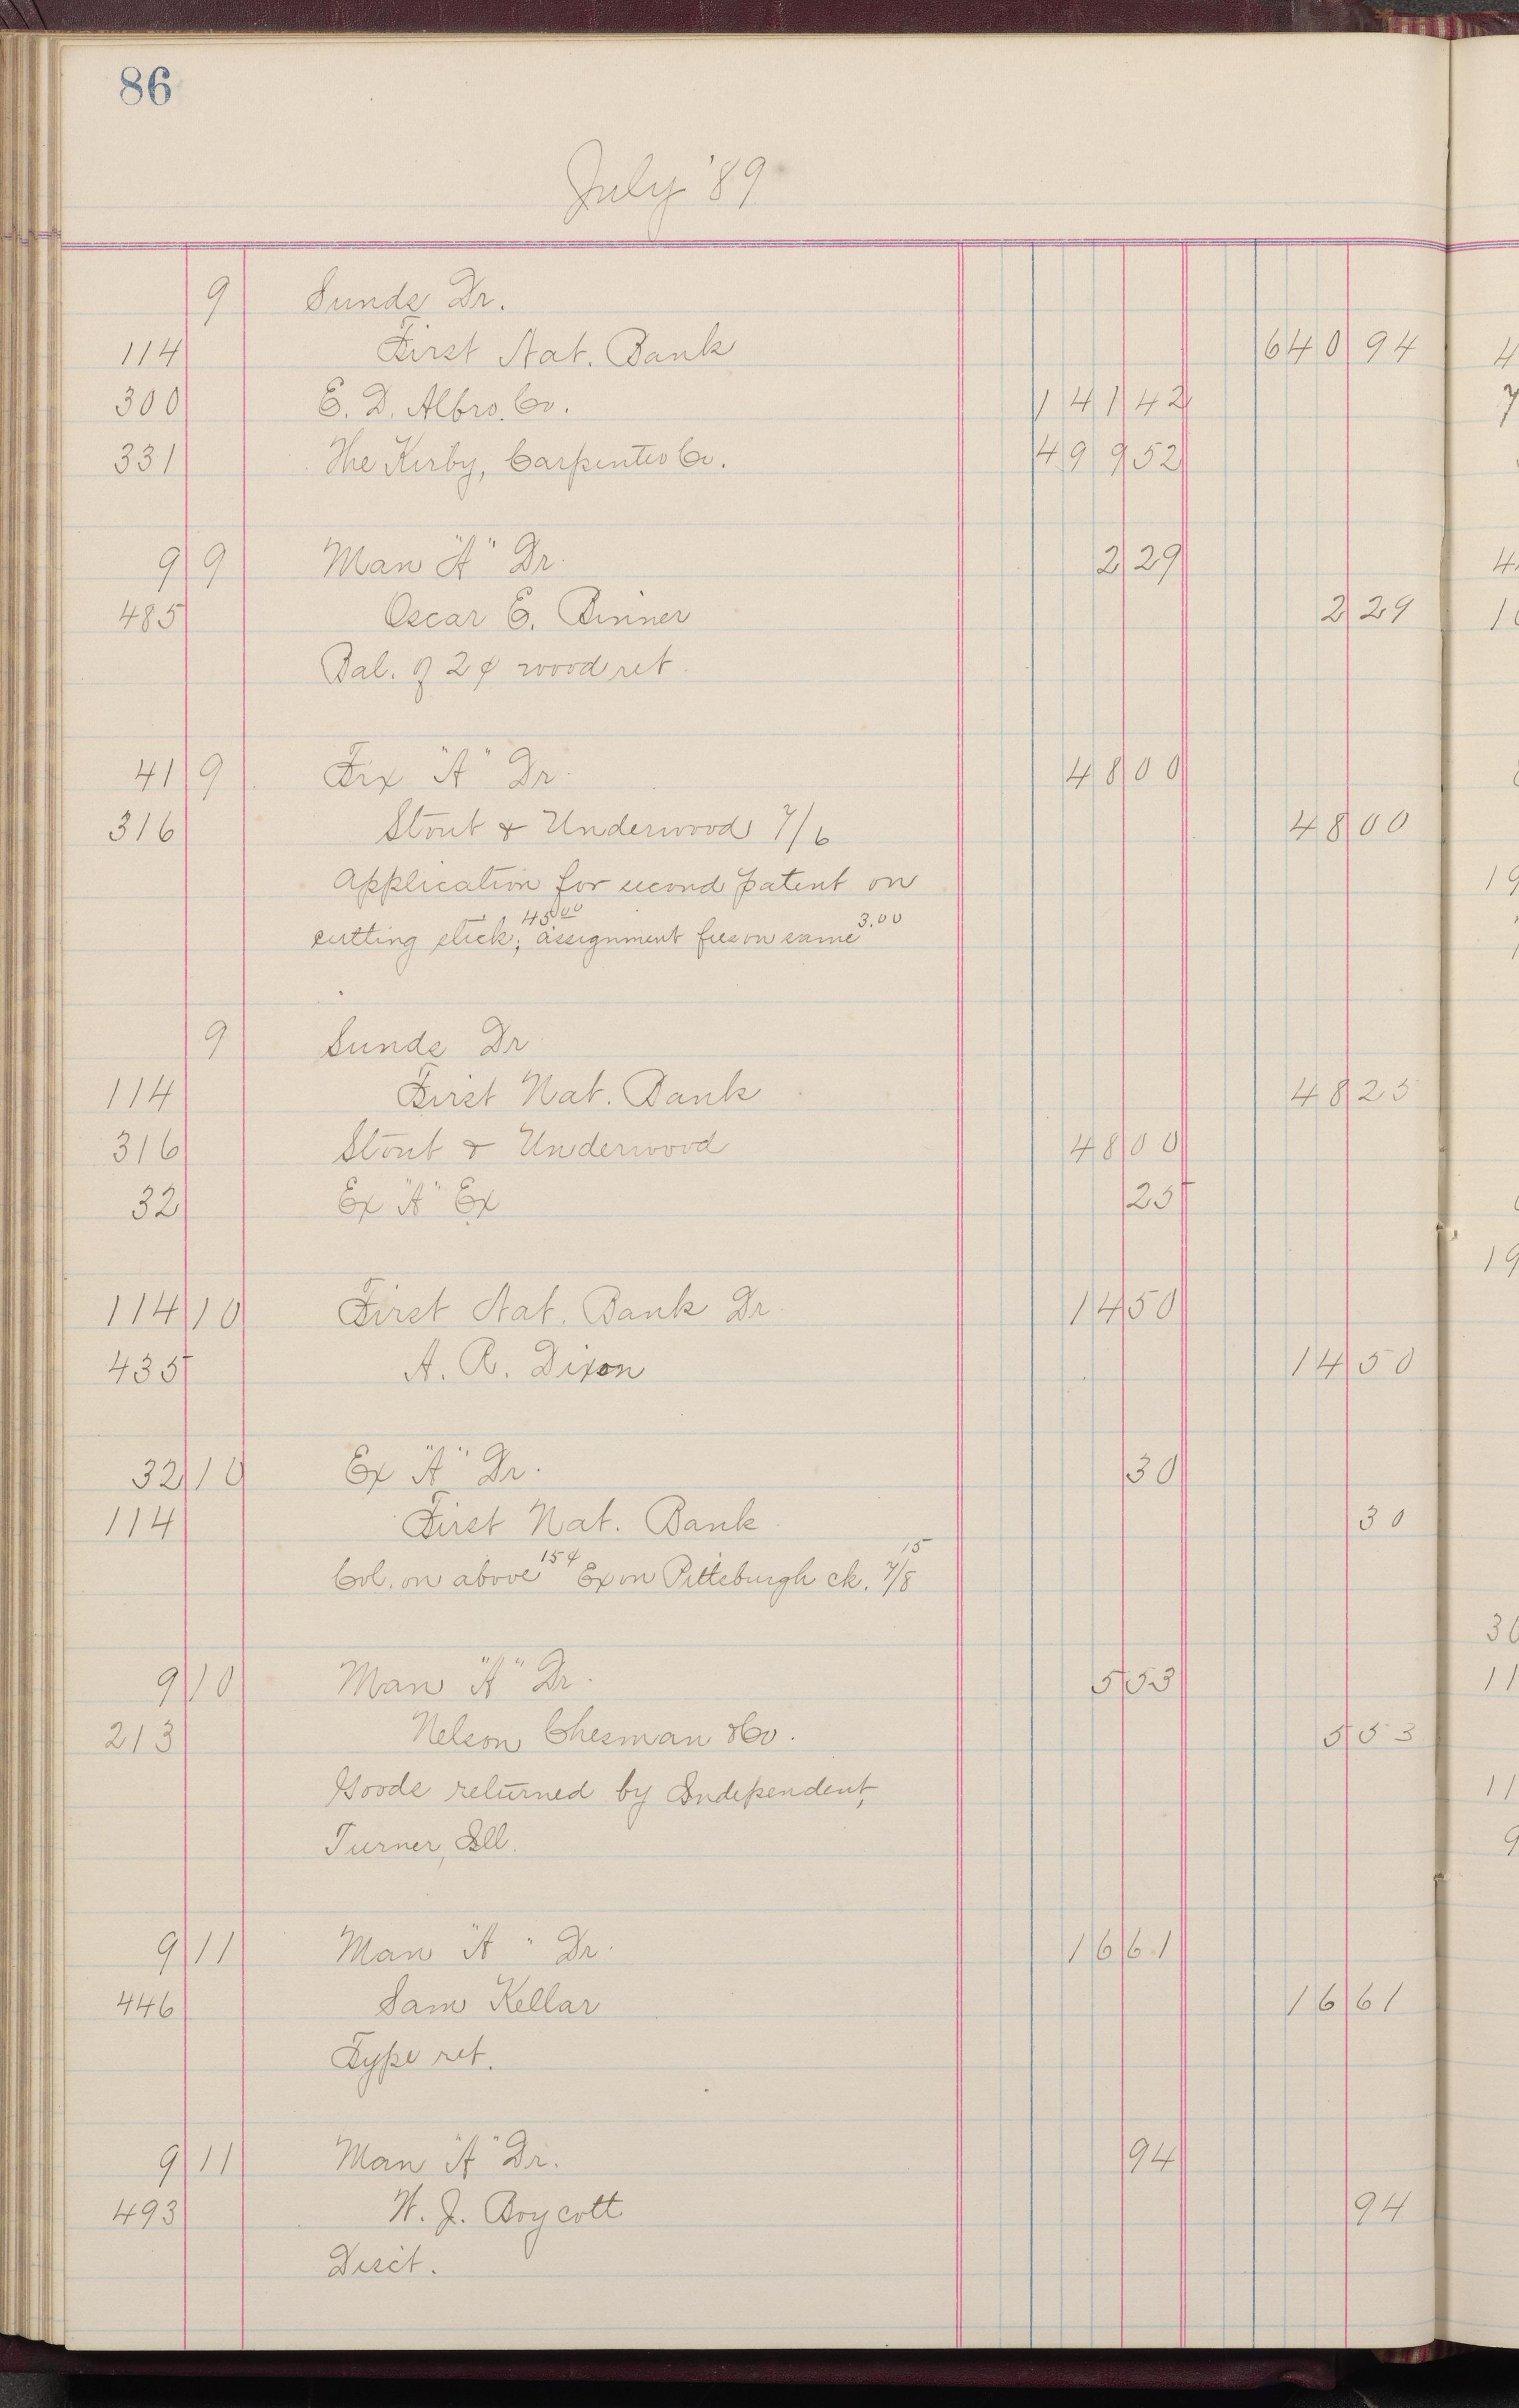 86
July '89
9 Sunds Dr.
114 First Nat. Bank 640 94
300 E. D. Albro Co. 141 42
331 The Kirby, Carpenter Co. 499 52
9 9 Man "A" Dr. 2 29
485 Oscar E. Binner 2 29
Bal. of 2¢ wood ret.
41 9 Fix "A" Dr. 48 00
316 Stout & Underwood 7/6 48 00
Application for second patent on
cutting stick; 45.00 assignment fees on same 3.00
9 Sunds Dr
114 First Nat. Bank 48 25
316 Stout & Underwood 48 00
32 Ex "A" Ex 25
114 10 First Nat. Bank Dr 14 50
435 A. R. Dixon 14 50
32 10 Ex "A" Dr. 30
114 First Nat. Bank 30
Col. on above 15¢ Ex on Pittsburgh ck. 7/8 15
9 10 Man "A" Dr. 5 53
213 Nelson Chesman & Co. 5 53
Goods returned by Independent,
Turner, Ill.
9 11 Man "A" Dr. 16 61
446 Sam Kellar 16 61
Type ret.
9 11 Man "A" Dr. 94
493 W. J. Boycott 94
Disct.